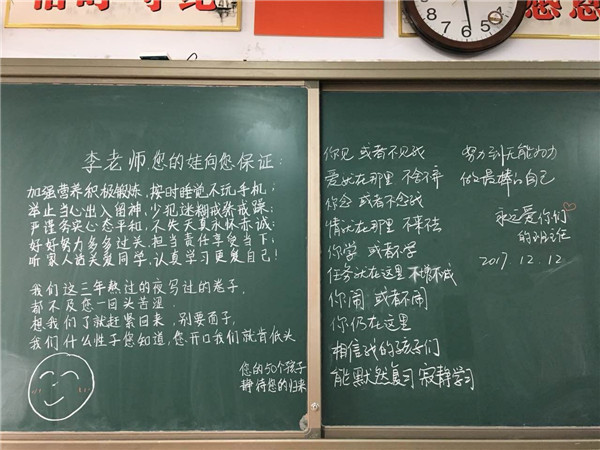 惜时 守纪
感恩
李老师您的娃向您保证：
加强营养积极锻炼，按时睡觉不玩手机；
举止当心出入留神，少犯迷糊戒骄戒躁；
严谨务实心态平和，不失天真永怀赤诚；
好好努力多多过关，担当责任享受当下；
听家人话关爱同学，认真学习更爱自己！
我们这三年熬过的夜写过的卷子，
都不及您一回头苦涩
想我们了就赶紧回来，别要面子，
我们什么性子您知道，您开口我们就肯低头
您的50个孩子
静待您的归来
你见 或者不见我
爱就在那里 不舍不弃
你念 或者不念我
情就在那里 不来不去
你学 或者不学
任务就在这里 不增不减
你闹 或者不闹
你仍在这里
相信我的孩子们
能默然复习 寂静学习
努力到无能为力
做最棒的自己
永远爱你们
的班主任
2017.12.12